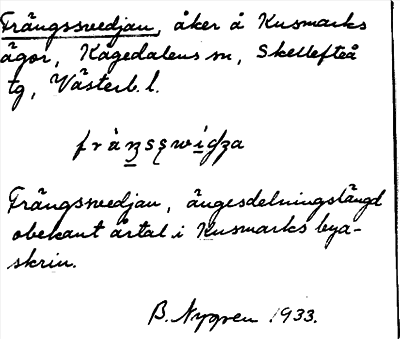 Frängssvedjan, åker å Kusmarks
ägor, Kågedalens sn, Skellefteå
tg, Västerb. l.
Frängsvedjan, ängesdelningslängd
obekant årtal i Kusmarks bya-
skrin.
B. Nygren 1933.